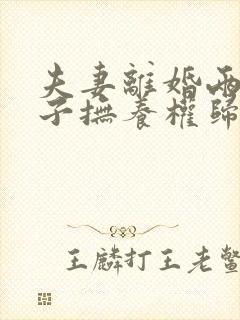 夫妻離婚兩
子撫養權歸
王麟打王老鳖